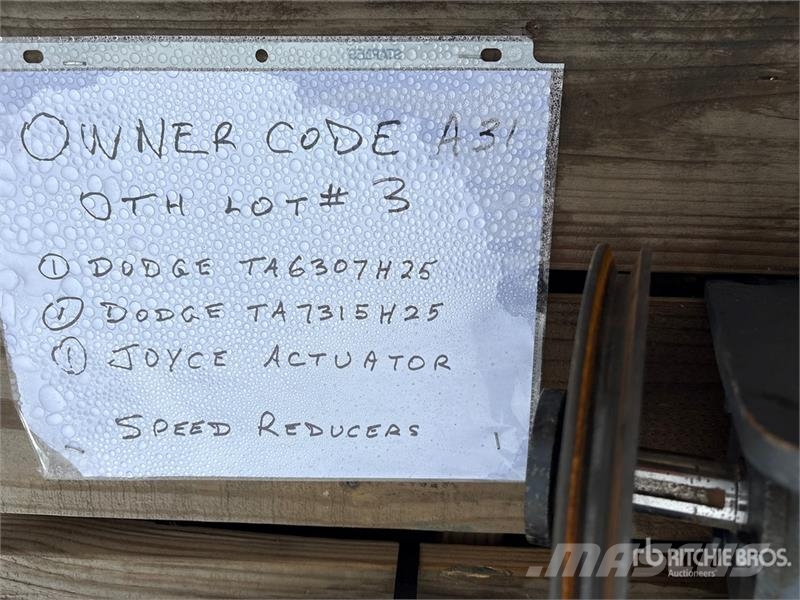 STAPLES
OWNER CODE A31
OTH LOT# 3
① DODGE TA6307H25
① DODGE TA7315H25
① JOYCE ACTUATOR
SPEED REDUCERS
MASCUS
rb RITCHIE BROS.
Auctioneers